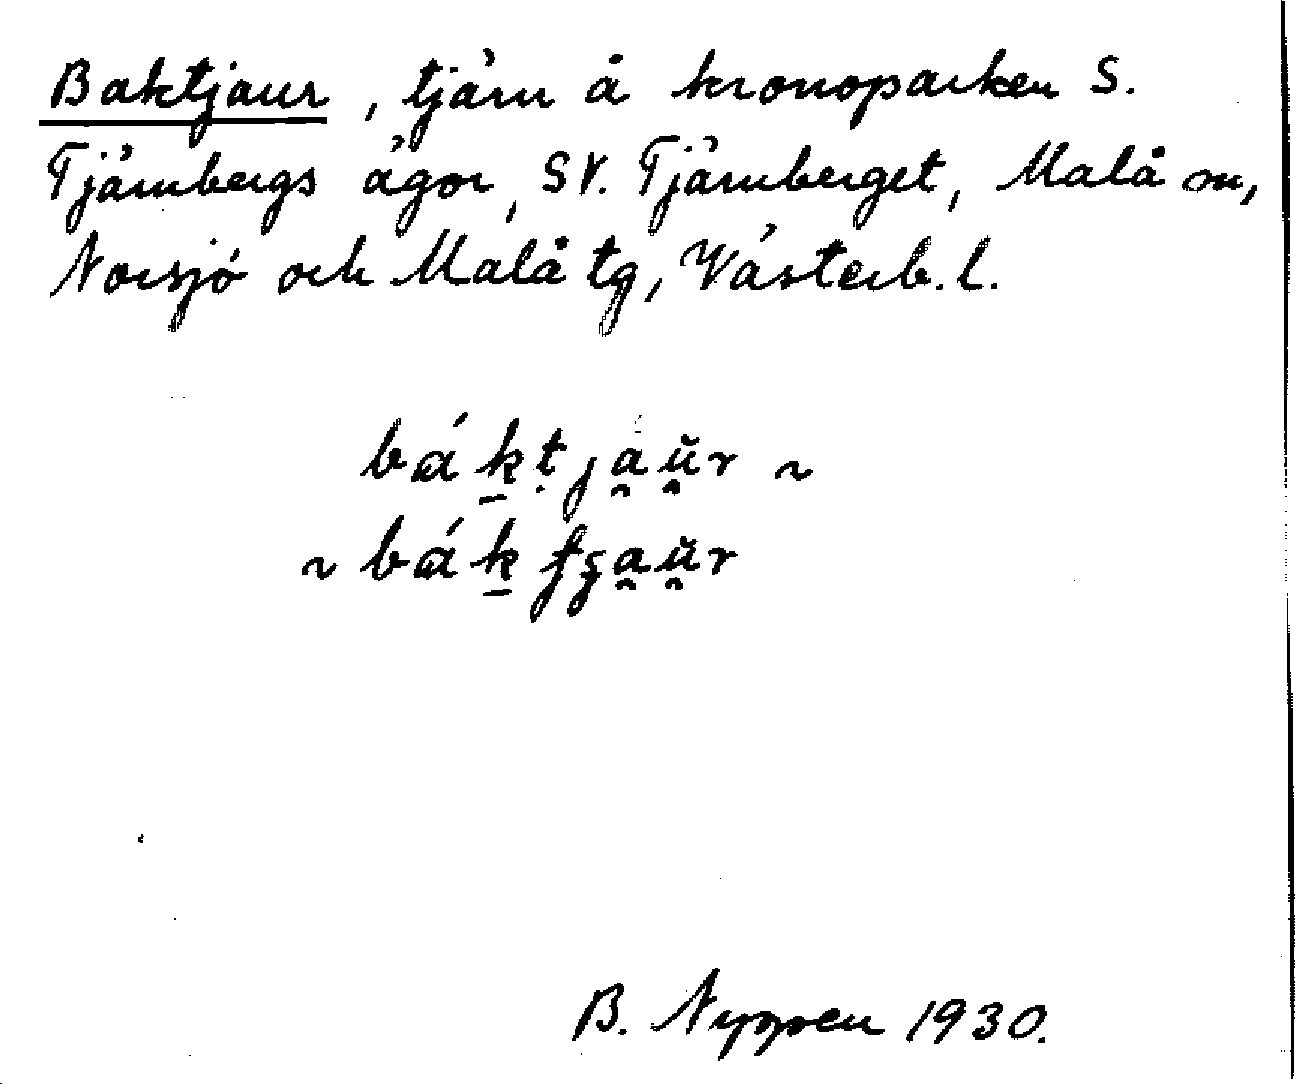 Baktjaur, tjärn å kronoparken S.
Tjärnbergs ägor, SV. Tjärnberget, Malå sn,
Norsjö och Malå tg, Västerb. l.
bák̠ṭja̯ŭ̯r ~
~ bák̠
B. Nygren 1930.